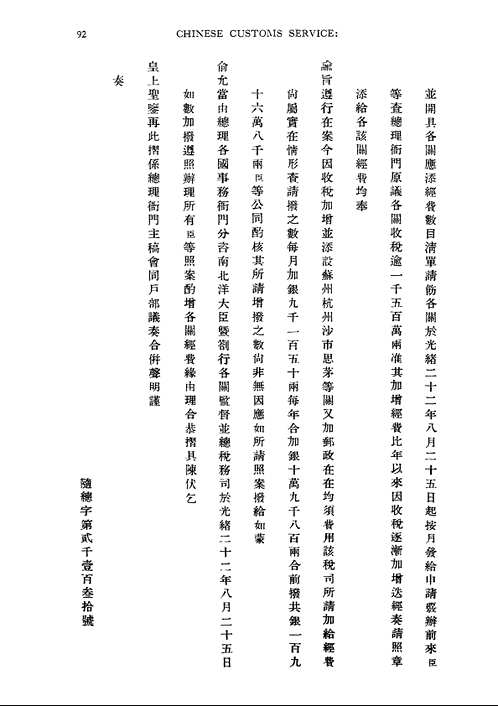 92
CHINESE CUSTOMS SERVICE:
並開具各關應添經費數目淸單請飭各關於光緖二十二年八月二十五日起按月發給申請覈辦前來臣
等查總理衙門原議各關收稅逾一千五百萬兩准其加增經費比年以來因收稅逐漸加增迭經奏請照章
添給各該關經費均奉
諭旨遵行在案今因收稅加增並添設蘇州杭州沙市思茅等關又加郵政在在均須費用該稅司所請加給經費
尙屬實在情形查請撥之數每月加銀九千一百五十兩每年合加銀十萬九千八百兩合前撥共銀一百九
十六萬八千兩臣等公同酌核其所請增撥之數尙非無因應如所請照案撥給如蒙
俞允當由總理各國事務衙門分咨南北洋大臣曁劄行各關監督並總稅務司於光緖二十二年八月二十五日
如數加撥遵照辦理所有臣等照案酌增各關經費緣由理合恭摺具陳伏乞
皇上聖鑒再此摺係總理衙門主稿會同戶部議奏合併聲明謹
奏
隨總字第貳千壹百叁拾號